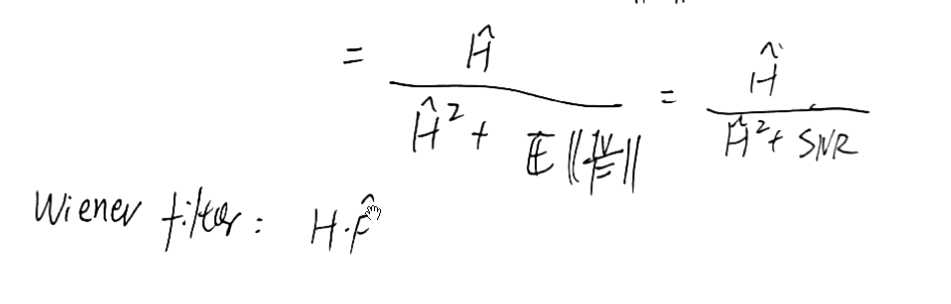 = Ĥ / (Ĥ² + E‖N/F‖) = Ĥ / (Ĥ² + SNR)
Wiener filter: H·F̂